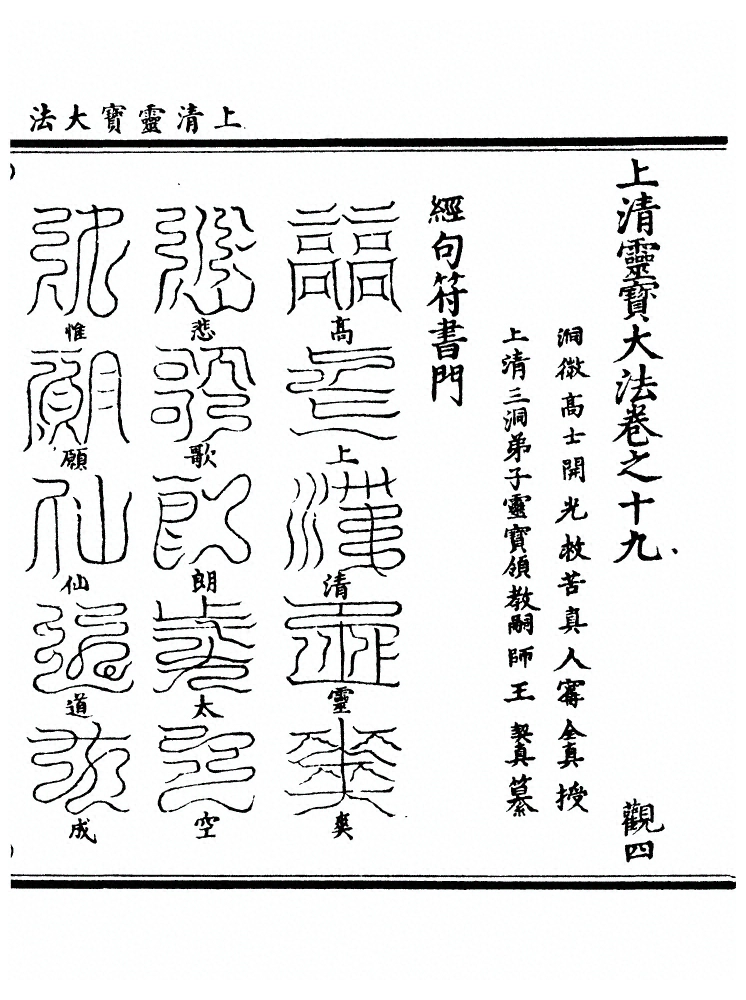 上清靈寶大法
上清靈寶大法卷之十九
觀四
洞微高士開光救苦真人甯全真授
上清三洞弟子靈寶領教嗣師王契真纂
經句符書門
高上清靈爽
悲歌朗太空
惟願仙道成